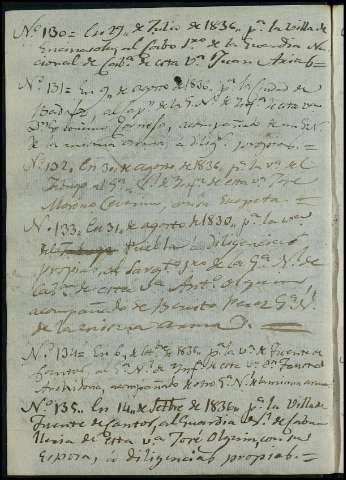 Nº 130= En 29,, de Julio de 1836,, pª la Villa de
al Cabo 1ro de la Guardia Na-
cional de Cabª de esta vª Juan Arias=
Nº 131= En 9,, de agosto de 1836,, pª la Ciudad de
Badajoz, al de la G. N. de Infª de esta vª
acompañado de un G. N.
de la misma arma, a dilig.s propias. =
Nº 132,, en 30,, de agosto de 1836,, pª la vª del
al Gª Nª de Infª de esta vª José
Moreno con su Esposa. =
Nº 133= en 31,, de agosto de 1836,, pª la vª
de Puebla a diligencias
propias, al Sargto 1ro de la Gª Nª. de
Cabª de esta Vª Antº Olguin,
acompañado de Benito Perez Gª Nª.
de la misma arma. =
Nº 134= En 6,, de Stbre de 1836,, pª la vª de Fuente de
Cantos, al Gª Nª de Infª de esta vª
acompañado de otro Gª Nª de la misma arma
Nº 135,, En 14,, de Setbre de 1836,, pª la Villa de
Fuente de Cantos, al Guardia Nª de Caba-
lleria de esta vª José Olguin, con su
Esposa, a diligencias propias.=